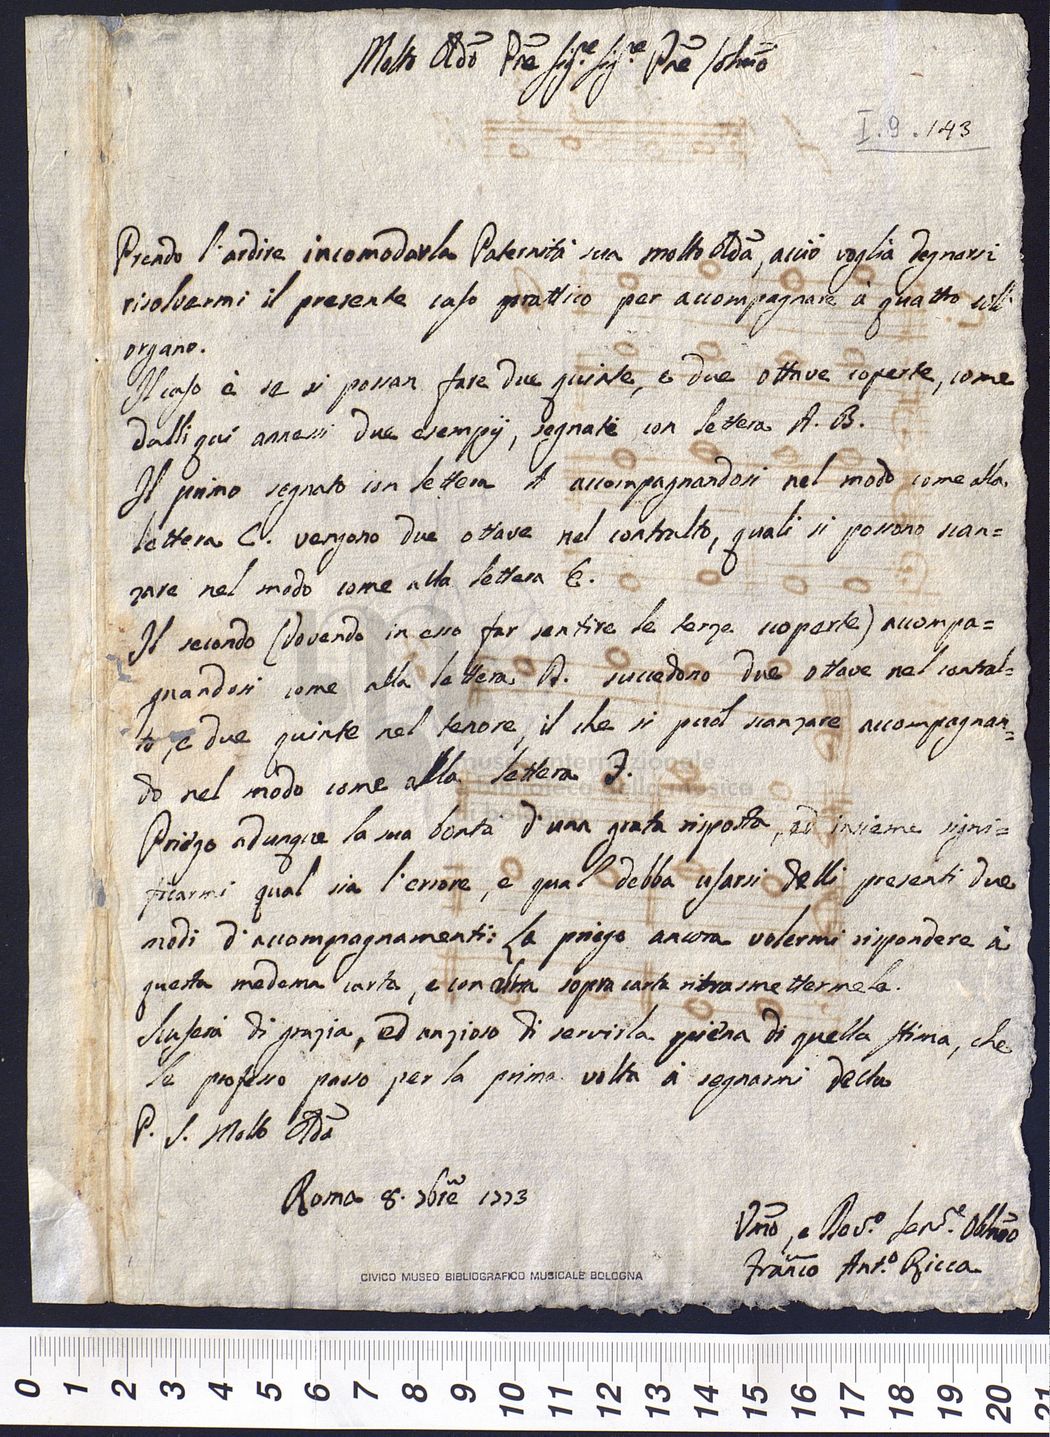 Molto Rdõ Prẽ Sig.re Sig.re Prẽ Colmõ
I. 9. 143
Prendo l'ardire incomodarla Paternità sua molto Rdã, acciò voglia degnarsi
risolvermi il presente caso prattico per accompagnare à quattro coll'
organo.
Il caso è se si possan fare due quinte, e due ottave coperte, come
dalli quì annessi due esempij, segnati con lettera A. B.
Il primo segnato con lettera A accompagnandosi nel modo come alla
lettera C. vengono due ottave nel contralto, quali si possono scan=
zare nel modo come alla lettera E.
Il secondo (dovendo in esso far sentire le terze scoperte) accompa=
gnandosi come alla lettera D. succedono due ottave nel contral=
to, e due quinte nel tenore, il che si puol scanzare accompagnan=
do nel modo come alla lettera F.
Priego adunque la sua bontà d'una grata risposta, ed insieme signi=
ficarmi qual sia l'errore, e qual debba usarsi delli presenti due
modi d'accompagnamenti: La priego ancora volermi rispondere à
questa medema carta, e con altra sopra carta ritrasmettermela.
Scuserà di grazia, ed anzioso di servirla piena di quella stima, che
le professo passo per la prima volta à segnarmi della
P. S. Molto Rdã
Roma 8. 9brẽ 1773
Vmõ, e Dev.o Serv.e Obblmõ
Franco Ant.o Ricca
museo internazionale
e biblioteca della musica
di bologna
CIVICO MUSEO BIBLIOGRAFICO MUSICALE BOLOGNA
0 1 2 3 4 5 6 7 8 9 10 11 12 13 14 15 16 17 18 19 20 21